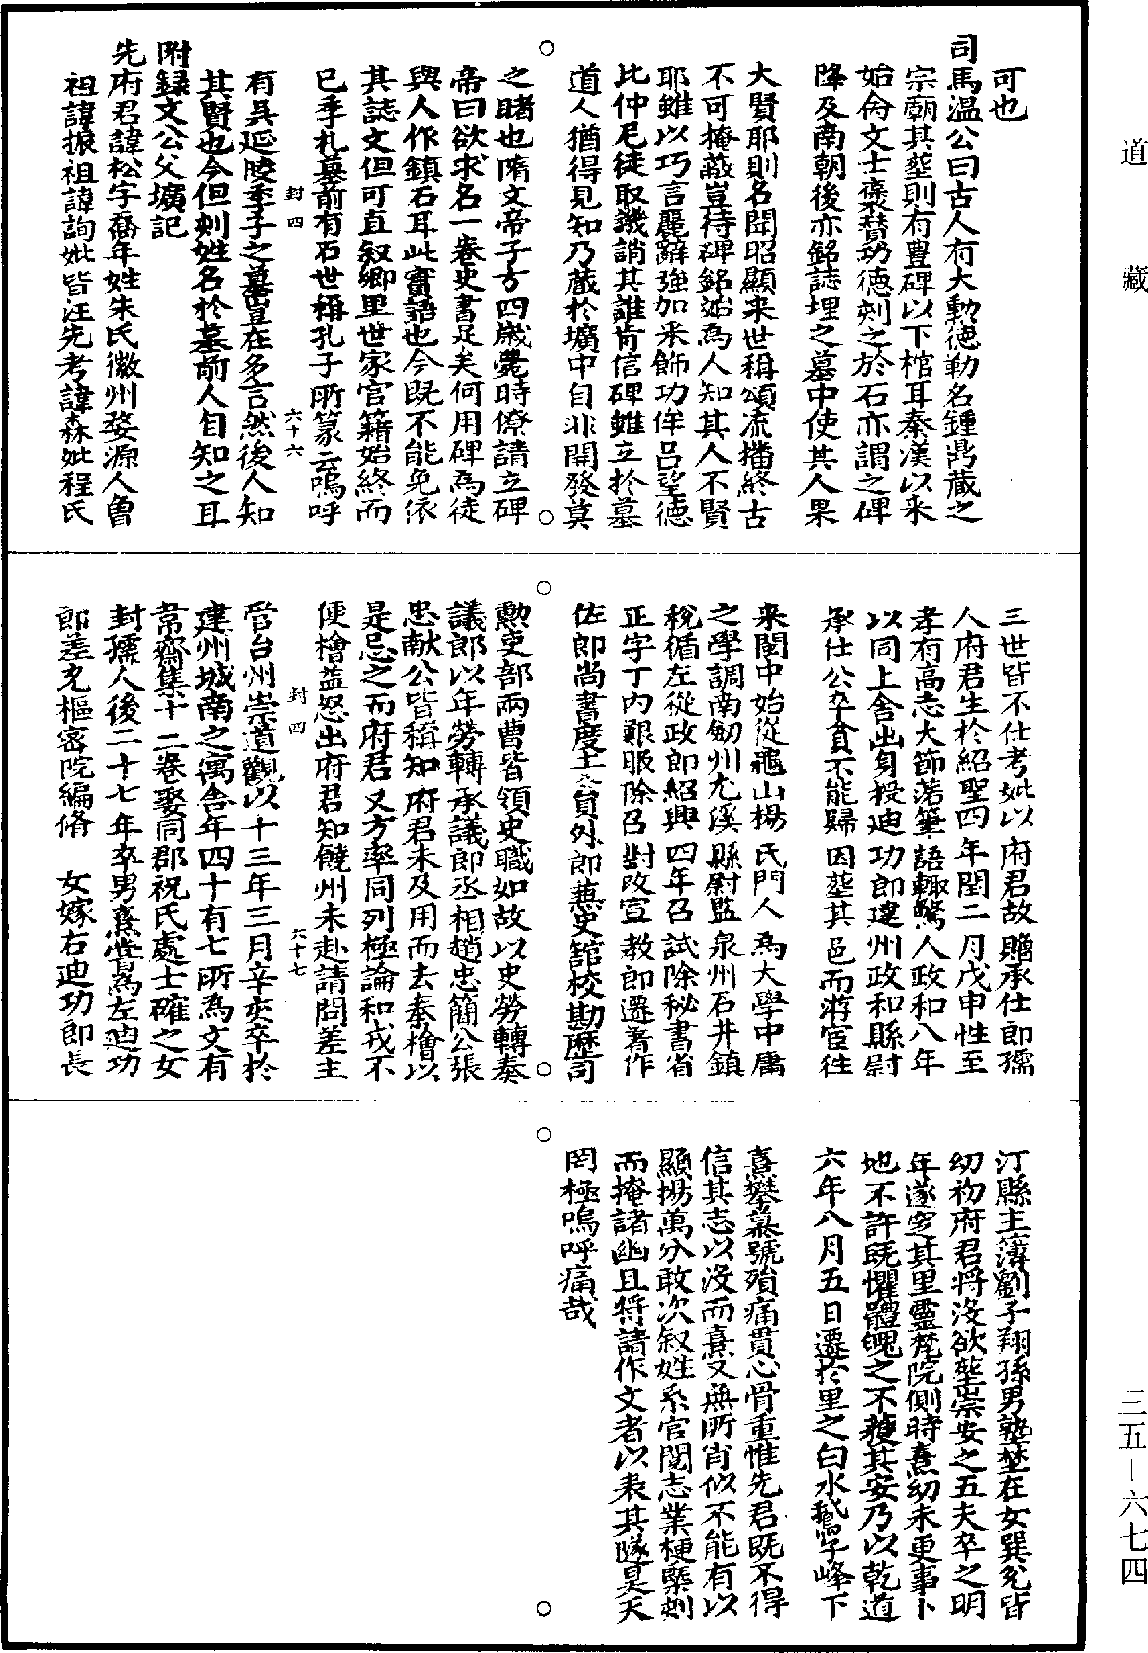 道藏
可也
司馬溫公曰古人有大勳德勒名鍾鼎藏之
宗廟其塟則有豐碑以下棺耳秦漢以來
始命文士褒賛功德刻之於石亦謂之碑
降及南朝後亦銘誌埋之墓中使其人果
大賢耶則名聞昭顯來世稱頌流播終古
不可掩蔽豈待碑銘始為人知其人不賢
耶雖以巧言麗辭強加采飾功侔呂望德
比仲尼徒取譏誚其誰肯信碑雖立於墓
道人猶得見知乃藏於壙中自非開發莫
之睹也隋文帝子方四歲薨時僚請立碑
帝曰欲求名一卷史書足矣何用碑為徒
與人作鎮石耳此實語也今既不能免依
其誌文但可直叙鄉里世家官籍始終而
已季札墓前有石世稱孔子所篆云嗚呼
封四
六十六
有吳延陵季子之墓豈在多言然後人知
其賢也今但刻姓名於墓前人自知之耳
附録文公父壙記
先府君諱松字喬年姓朱氏徽州婺源人曾
祖諱振祖諱詢妣皆汪先考諱森妣程氏
三世皆不仕考妣以府君故贈承仕郎孺
人府君生於紹聖四年閏二月戊申性至
孝有高志大節落筆語輙驚人政和八年
以同上舍出身授迪功郎建州政和縣尉
承仕公卒貧不能歸因塟其邑而游宦往
來閩中始從龜山楊氏門人為大學中庸
之學調南劒州尤溪縣尉監泉州石井鎮
稅循左從政郎紹興四年召試除秘書省
正字丁内艱服除召對改宣教郎遷著作
佐郎尚書度支員外郎兼史館校勘歷司
勲吏部兩曹皆領史職如故以史勞轉奏
議郎以年勞轉承議郎丞相趙忠簡公張
忠獻公皆稱知府君未及用而去秦檜以
是忌之而府君又方率同列極論和戎不
便檜益怒出府君知饒州未赴請間差主
封四
六十七
管台州崇道觀以十三年三月辛亥卒於
建州城南之寓舍年四十有七所為文有
韋齋集十二卷娶同郡祝氏處士確之女
封孺人後二十七年卒男熹嘗為左迪功
郎差充樞密院編脩　女嫁右迪功郎長
汀縣主簿劉子翔孫男塾埜在女巽兊皆
幼初府君將沒欲塟崇安之五夫卒之明
年遂窆其里靈梵院側時熹幼未更事卜
地不許既懼體魄之不獲其安乃以乾道
六年八月五日遷於里之白水鵝子峰下
熹攀慕號殞痛貫心骨重惟先君既不得
信其志以沒而熹又無所肖似不能有以
顯揚萬分敢次叙姓系官閥志業梗槩刻
而掩諸幽且將請作文者以表其隧昊天
罔極嗚呼痛哉
三五—六七四